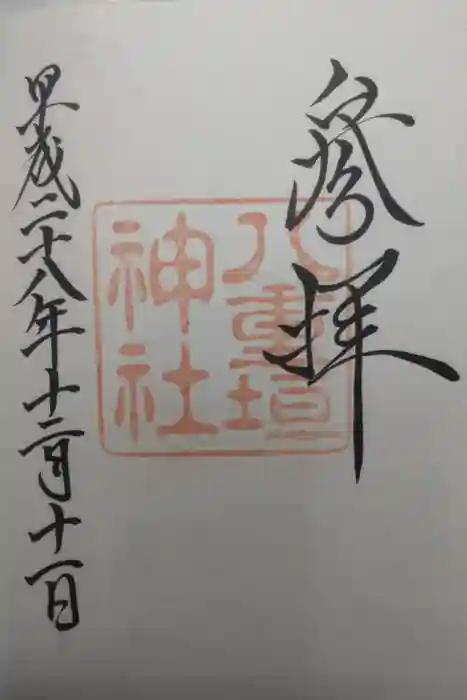 参拝
八重垣
神社
平成二十八年十二月十一日